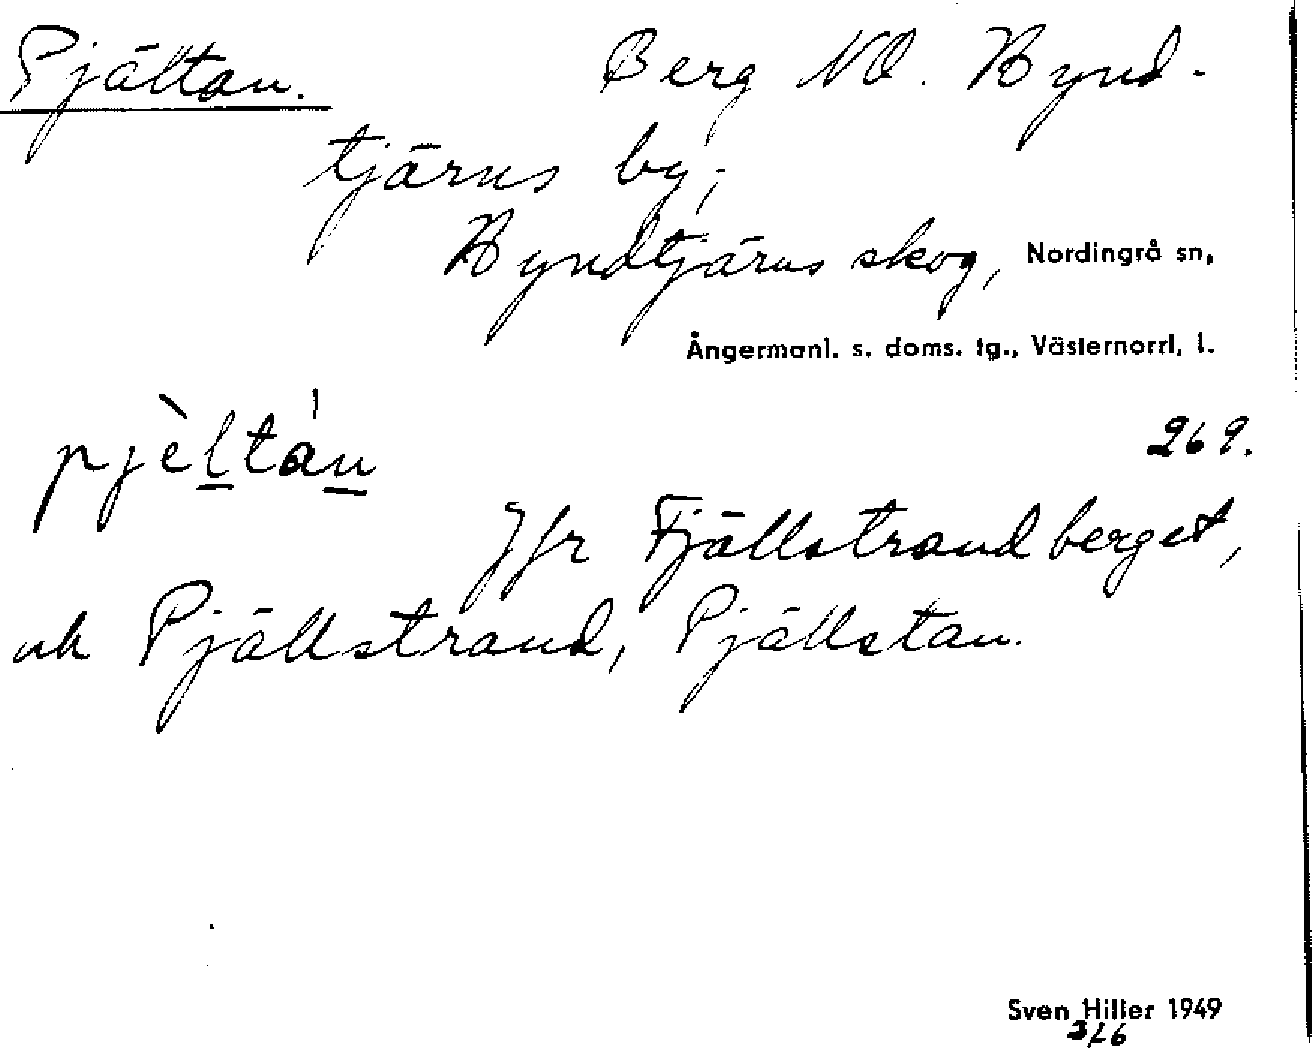 Pjältan. Berg NO. Bynd-
tjärns by;
Byndtjärns skog, Nordingrå sn,
Ångermanl. s. doms. tg., Västernorrl. l.
pjèltán 269.
Jfr Fjällstrandberget,
uk Pjällstrand, Pjällstan.
Sven Hiller 1949
3/6